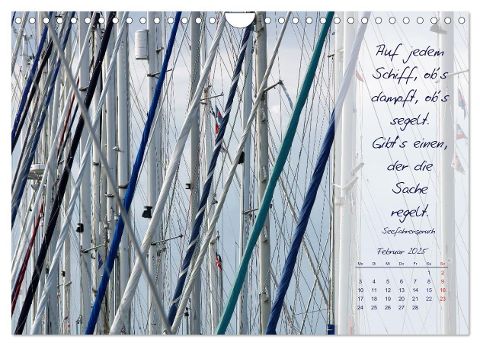 Auf jedem
Schiff, ob's
dampft, ob's
segelt.
Gibt's einen,
der die
Sache
regelt.
Seefahrerspruch
Februar 2025
Mo Di Mi Do Fr Sa So
1 2
3 4 5 6 7 8 9
10 11 12 13 14 15 16
17 18 19 20 21 22 23
24 25 26 27 28